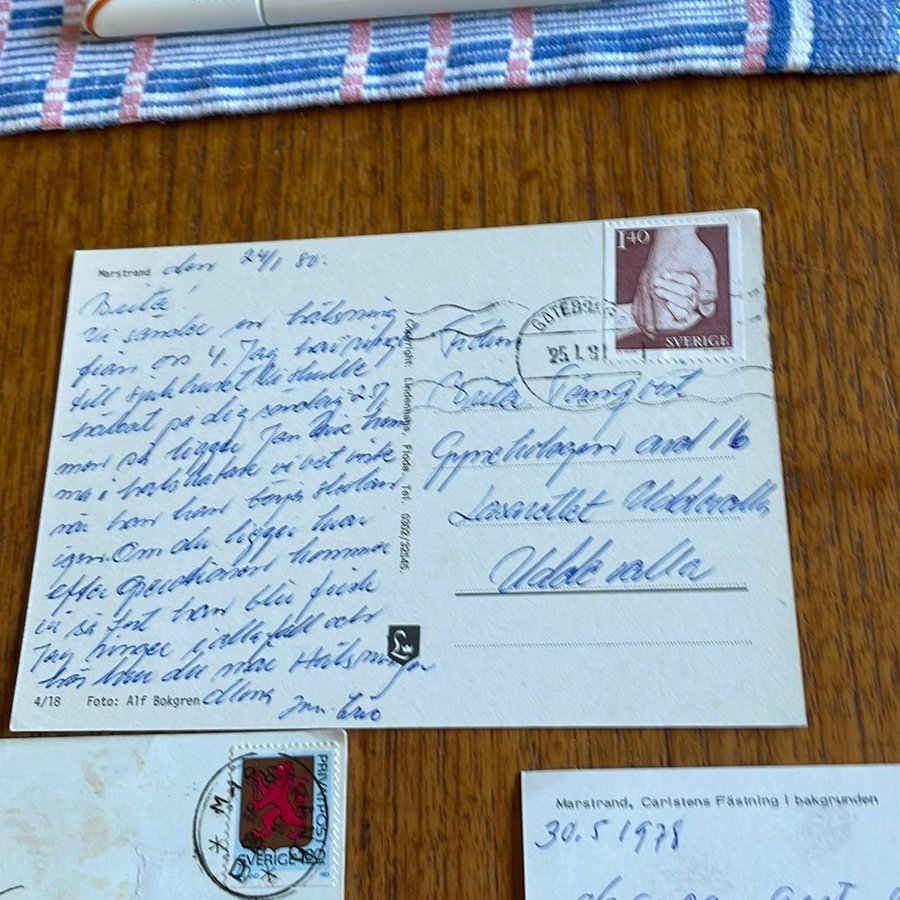 Marstrand den 24/1 80.
Brita!
Vi sänder en hälsning
från oss 4. Jag har ringt
till sjukhuset Vi skulle
hälsat på dig söndag
men så ligger Jan
vi vet inte
när han kan börja skolan
igen. Om du ligger kvar
efter operationen kommer
vi så fort han blir frisk
Jag ringer i alla fall och
hör hur du mår Hälsningar
Jan
4/18 Foto: Alf Bokgren
Copyright: Lindenhags, Floda. Tel. 0302/32545.
L
1 40
SVERIGE
GÖTEBORG
25.1.8
Fröken
Brita
Gynekologen avd 16
Lasarettet Uddevalla
Uddevalla
PRIVATPOST
SVERIGE
Marstrand, Carlstens Fästning i bakgrunden
30.5 1978